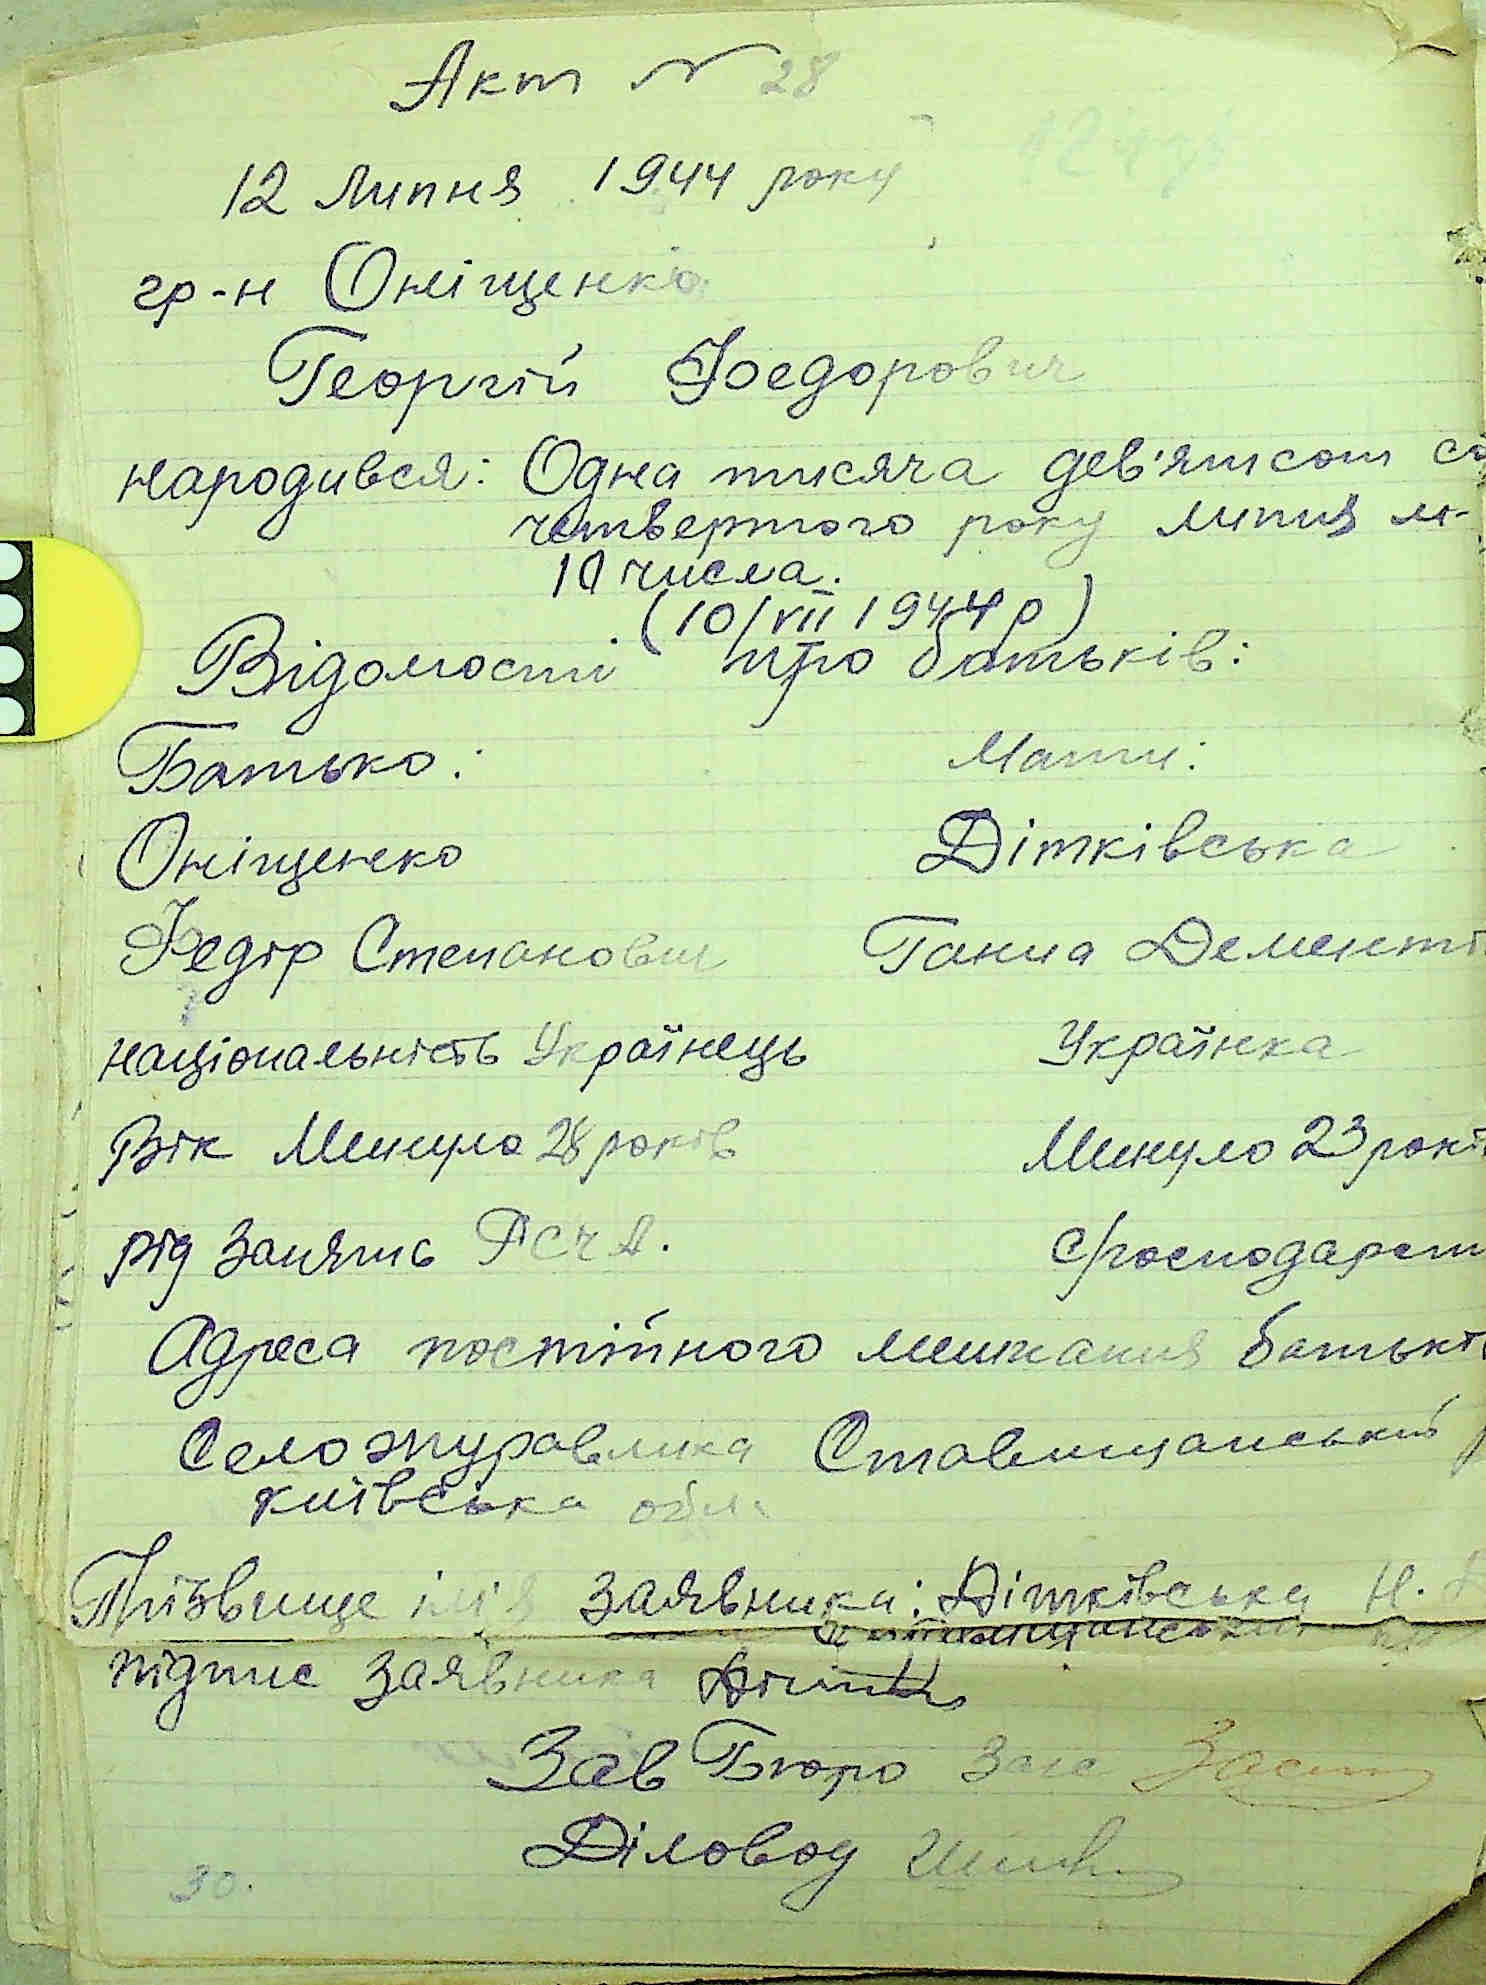 Акт № 28
12 липня 1944 року
гр-н Оніщенко
Георгій Фоедорович
народився: Одна тисяча дев'ятсот со
четвертого року липня м-
10 числа.
(10/VII 1944 р)
Відомості про батьків:
Батько: Мати:
Оніщенко Дітківська
Федір Степанович Ганна Дементі
національність Українець Українка
Вік Минуло 28 років Минуло 23 рокі
рід занять РСЧА. с/господарст
Адреса постійного мешкання батькі
Село Журавлика Ставищанський р
київська обл.
Прізвище ім'я заявника: Дітківська Н.
підпис заявника
Зав Бюро Загс
Діловод
30.